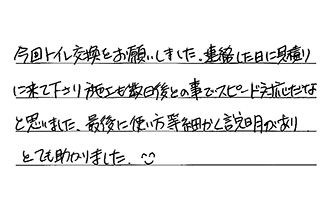 今回トイレ交換をお願いしました。連絡した日に見積り
に来て下さり施工も数日後との事でスピード対応だな
と思いました。最後に使い方等細かく説明があり
とても助かりました。